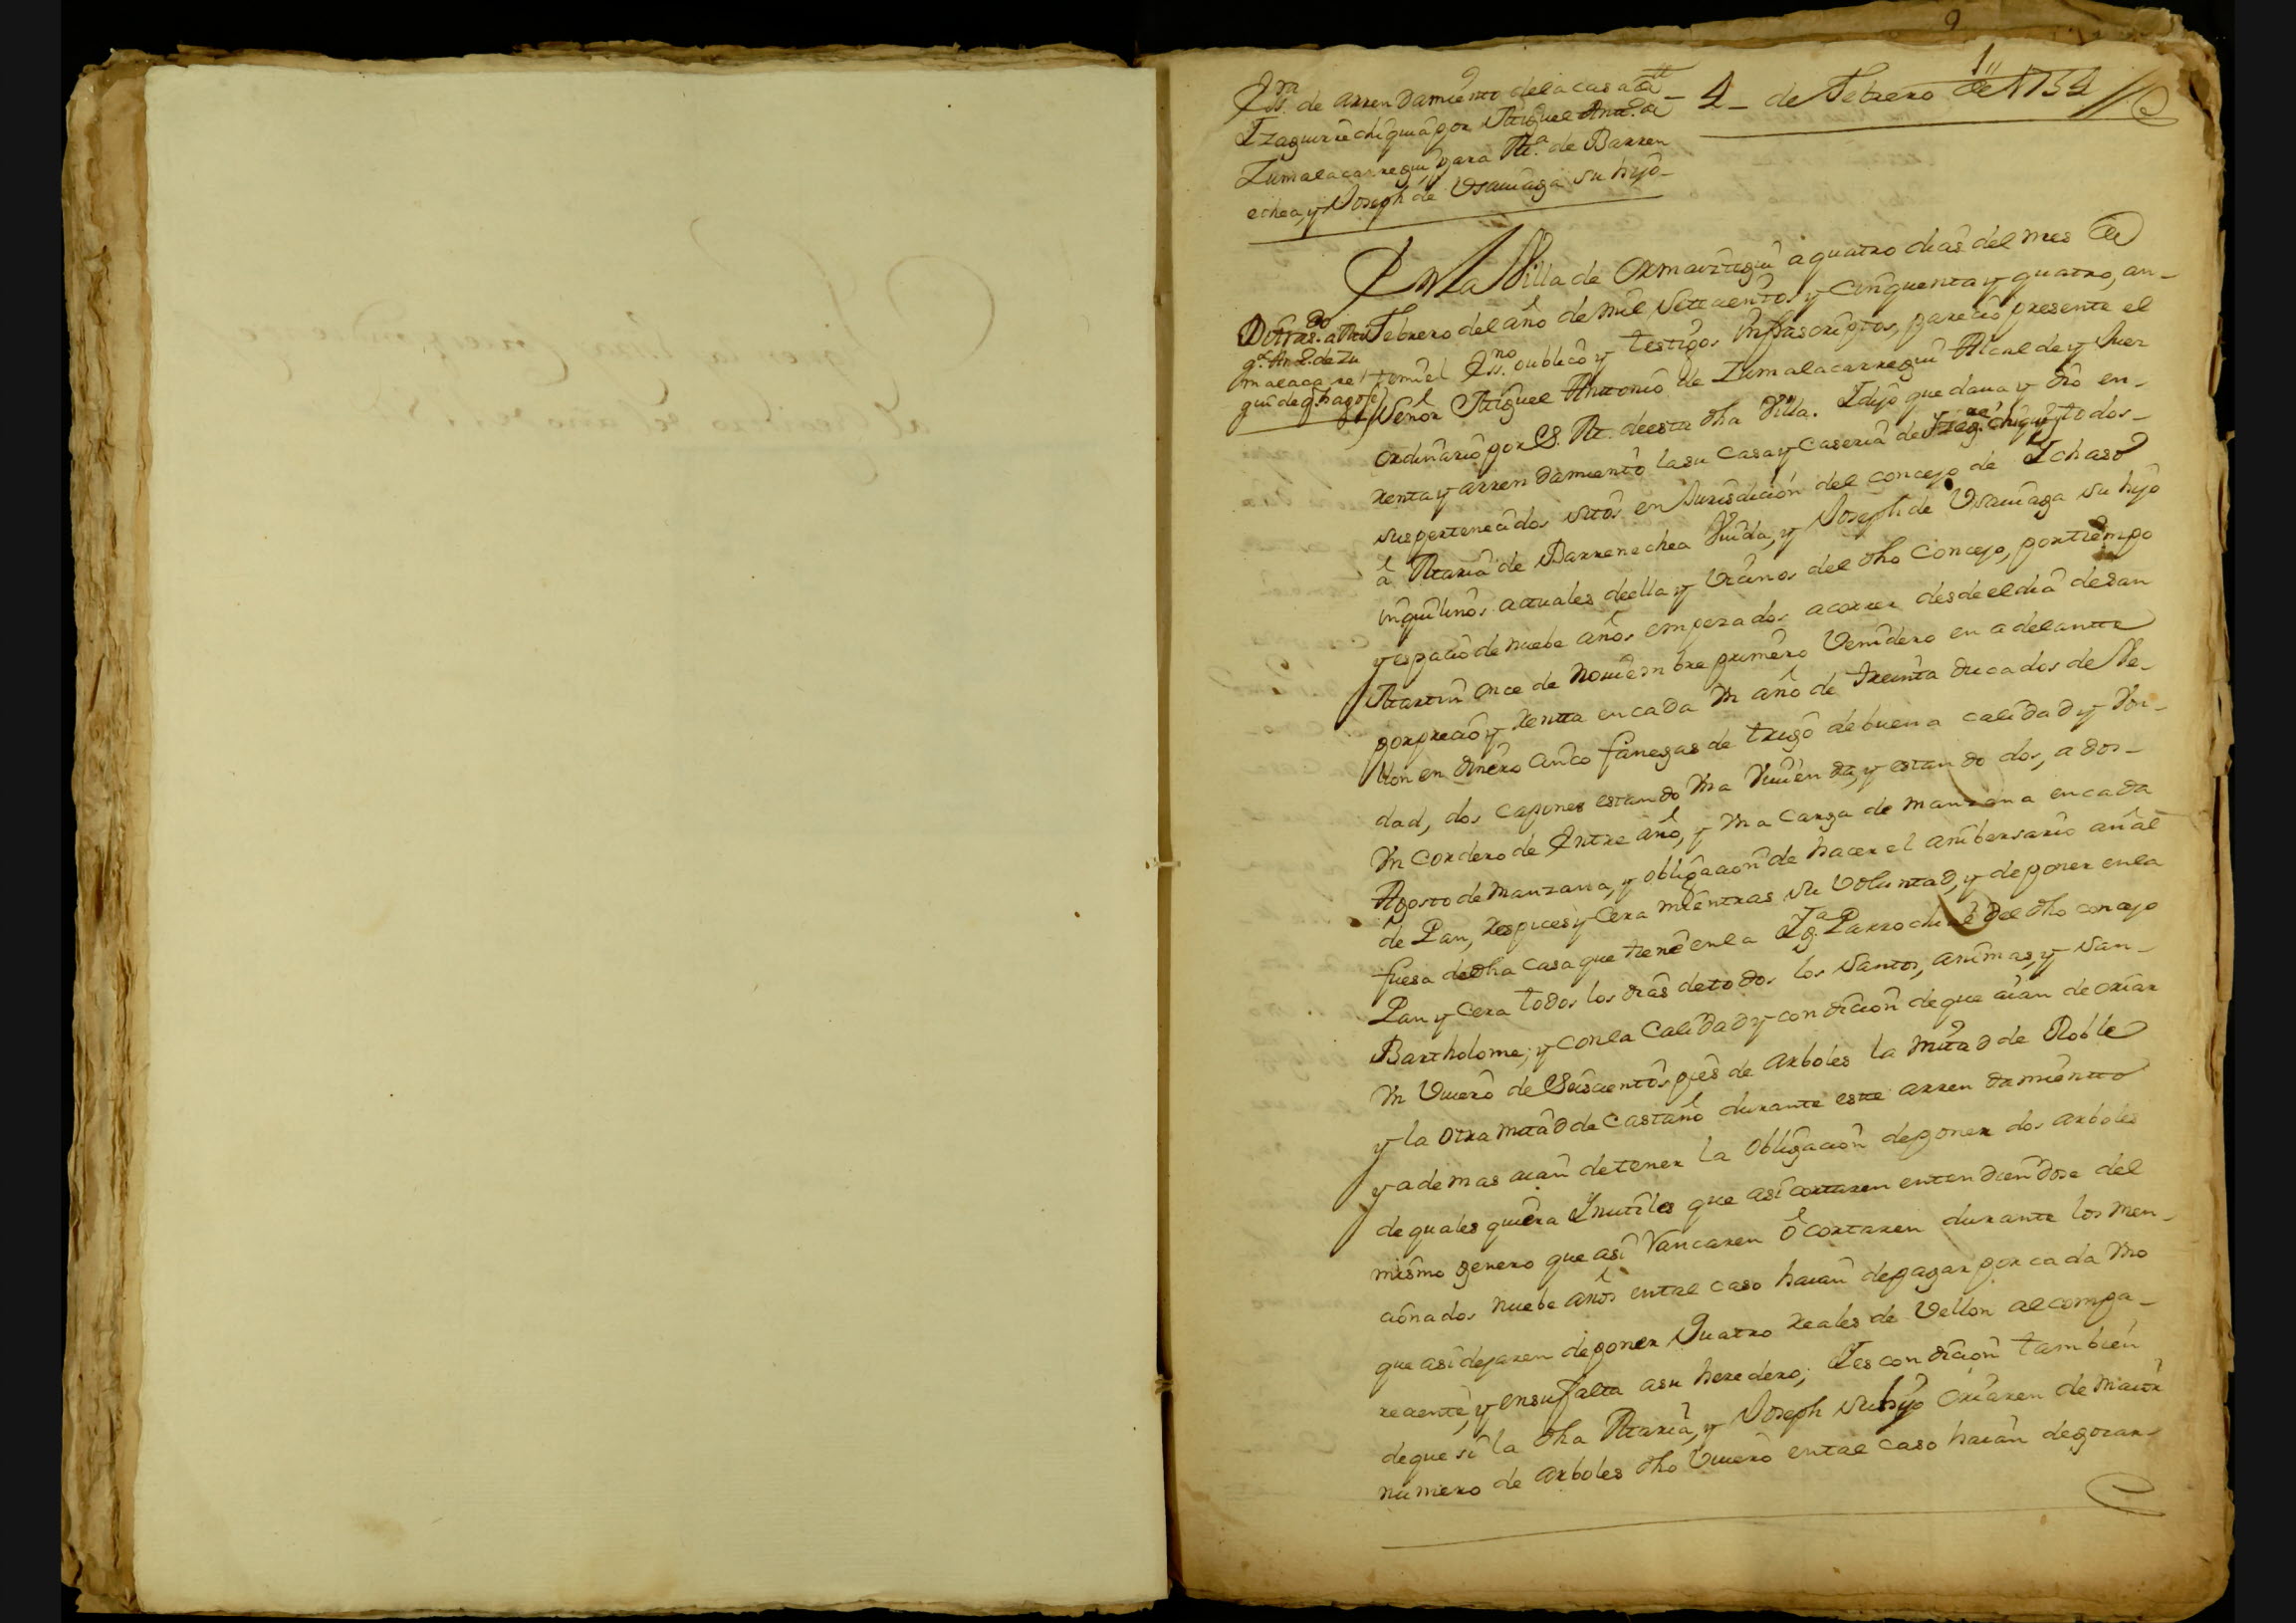 9
1
Essra. de arrendamiento de la casa de
Yzaguirrechiquia por Miguel Antt.o de
Zumalacarregui para Ma. de Barren
echea, y Joseph de Vsauiaga su hijo
4 de Febrero de 1754 //
En la Villa de Ormaiztegui a quatro dias del mes de
Febrero del año de mil setecientos y cinquenta y quatro, an-
te mi el Essno. publico y testigos infrascriptos, parecio presente el
Señor Miguel Antonio de Zumalacarregui Alcalde y Juez
ordinario por S. M. de esta dha Villa. Y dijo que daua y dio en
renta y arrendamiento la su casa y Caseria de Yzagre. chiqui y todos
sus pertenecidos sitos en Jurisdicion del concejo de Ychaso
â Maria de Barrenechea Viuda, y Joseph de Vsauiaga su hijo
inquilinos actuales de ella y Vecinos del dho Concejo, por tiempo
y espacio de nuebe años empezados a correr desde el dia de San
Martin once de Nouiembre primero Venidero en adelante
por precio y renta en cada Vn año de treinta ducados de Ve-
llon en dinero cinco fanegas de trigo de buena calidad y Von-
dad, dos capones estando Vna Viuienda, y estando dos, a dos
Vn Cordero de Entre año, y Vna Carga de manzana en cada
Agosto de Manzana, y obligacion de hacer el anibersario añal
de Pan, respices y Cera mientras su Voluntad, y de poner en la
fuesa de dha casa que tiene en la Yga. Parrochial del dho concejo
Pan y Cera todos los dias de todos los Santos, animas, y San
Bartholome; y con la Calidad y condicion de que aian de criar
Vn Viuero de Seiscientos pies de arboles la mitad de Roble
y la otra mitad de Castaño durante este arrendamiento
y ademas aian de tener la obligacion de poner dos arboles
de quales quiera Ynutiles que asi cortaren entendiendose del
mismo genero que asi Vancaren ô cortaren durante los men-
cionados nuebe años en tal caso haian de pagar por cada Vno
que asi dejaren de poner Quatro reales de Vellon al compa-
reciente, y en su falta a su heredero; Y es condicion tambien
de que si la dha Maria, y Joseph su hijo criaren de maior
numero de arboles dho Viuero en tal caso haian de gozar